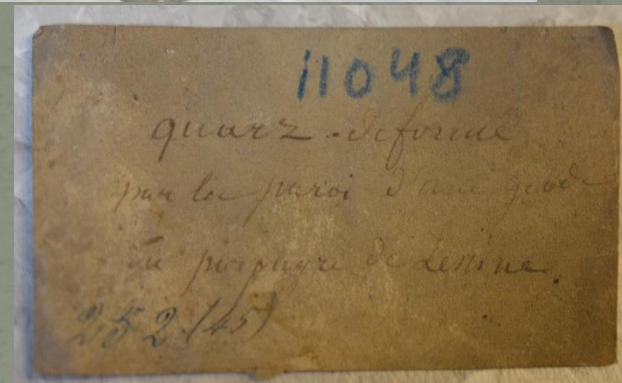 11048
quarz déformé
par la paroi d'une géode
du porphyre de Lessines.
252 (45)